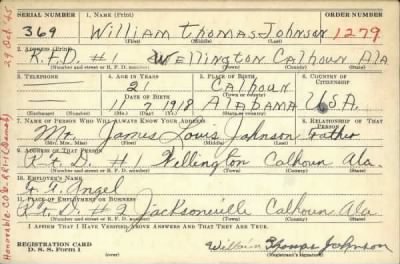 SERIAL NUMBER 1. NAME (Print) ORDER NUMBER
369 William Thomas Johnson 1279
(First) (Middle) (Last)
2. ADDRESS (Print)
R.F.D. #1 Wellington Calhoun Ala
(Number and street or R. F. D. number) (Town) (County) (State)
3. TELEPHONE 4. AGE IN YEARS 5. PLACE OF BIRTH 6. COUNTRY OF CITIZENSHIP
2 Calhoun
DATE OF BIRTH
11 7 1918 Alabama U.S.A.
(Exchange) (Number) (Mo.) (Day) (Yr.) (State or country)
7. NAME OF PERSON WHO WILL ALWAYS KNOW YOUR ADDRESS 8. RELATIONSHIP OF THAT PERSON
Mr. James Louis Johnson Father
(Mr., Mrs., Miss) (First) (Middle) (Last)
9. ADDRESS OF THAT PERSON
R.F.D. #1 Wellington Calhoun Ala.
(Number and street or R. F. D. number) (Town) (County) (State)
10. EMPLOYER'S NAME
Angel
11. PLACE OF EMPLOYMENT OR BUSINESS
R.F.D. #2 Jacksonville Calhoun Ala.
(Number and street or R. F. D. number) (Town) (County) (State)
I AFFIRM THAT I HAVE VERIFIED ABOVE ANSWERS AND THAT THEY ARE TRUE.
REGISTRATION CARD
D. S. S. Form 1
William Thomas Johnson
(Registrant's signature)
29 Oct 45